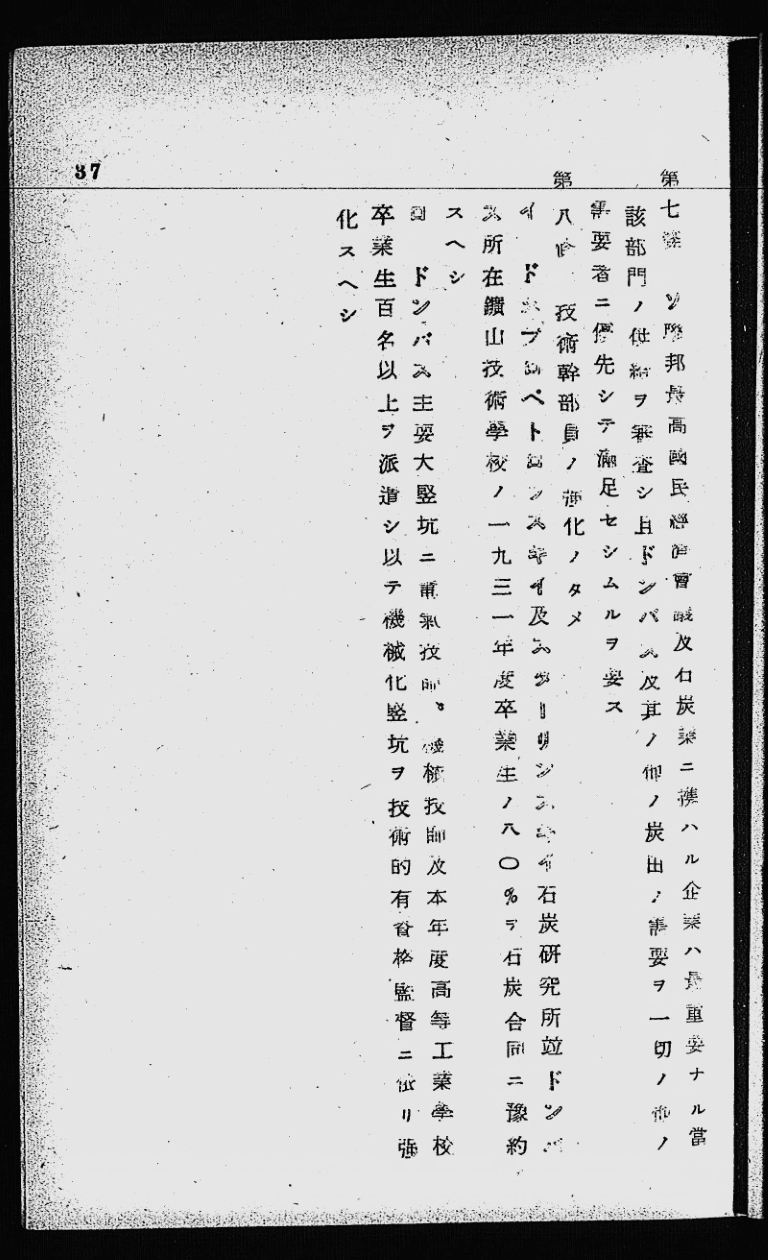 37
第七條 ソ聯邦最高國民經濟會議及石炭業ニ攜ハル企業ハ最重要ナル當
該部門ノ供給ヲ審査シ且ドンバス及其ノ他ノ炭田ノ需要ヲ一切ノ他ノ
需要者ニ優先シテ滿足セシムルヲ要ス
第八條 技術幹部員ノ強化ノタメ
イ ドネプロペトロンスキイ及スターリンスキイ石炭研究所竝ドンバ
ス所在鑛山技術學校ノ一九三一年度卒業生ノ八〇%ヲ石炭合同ニ豫約
スヘシ
ロ ドンバス主要大竪坑ニ電氣技師。機械技師及本年度高等工業學校
卒業生百名以上ヲ派遣シ以テ機械化竪坑ヲ技術的有資格監督ニ依リ強
化スヘシ